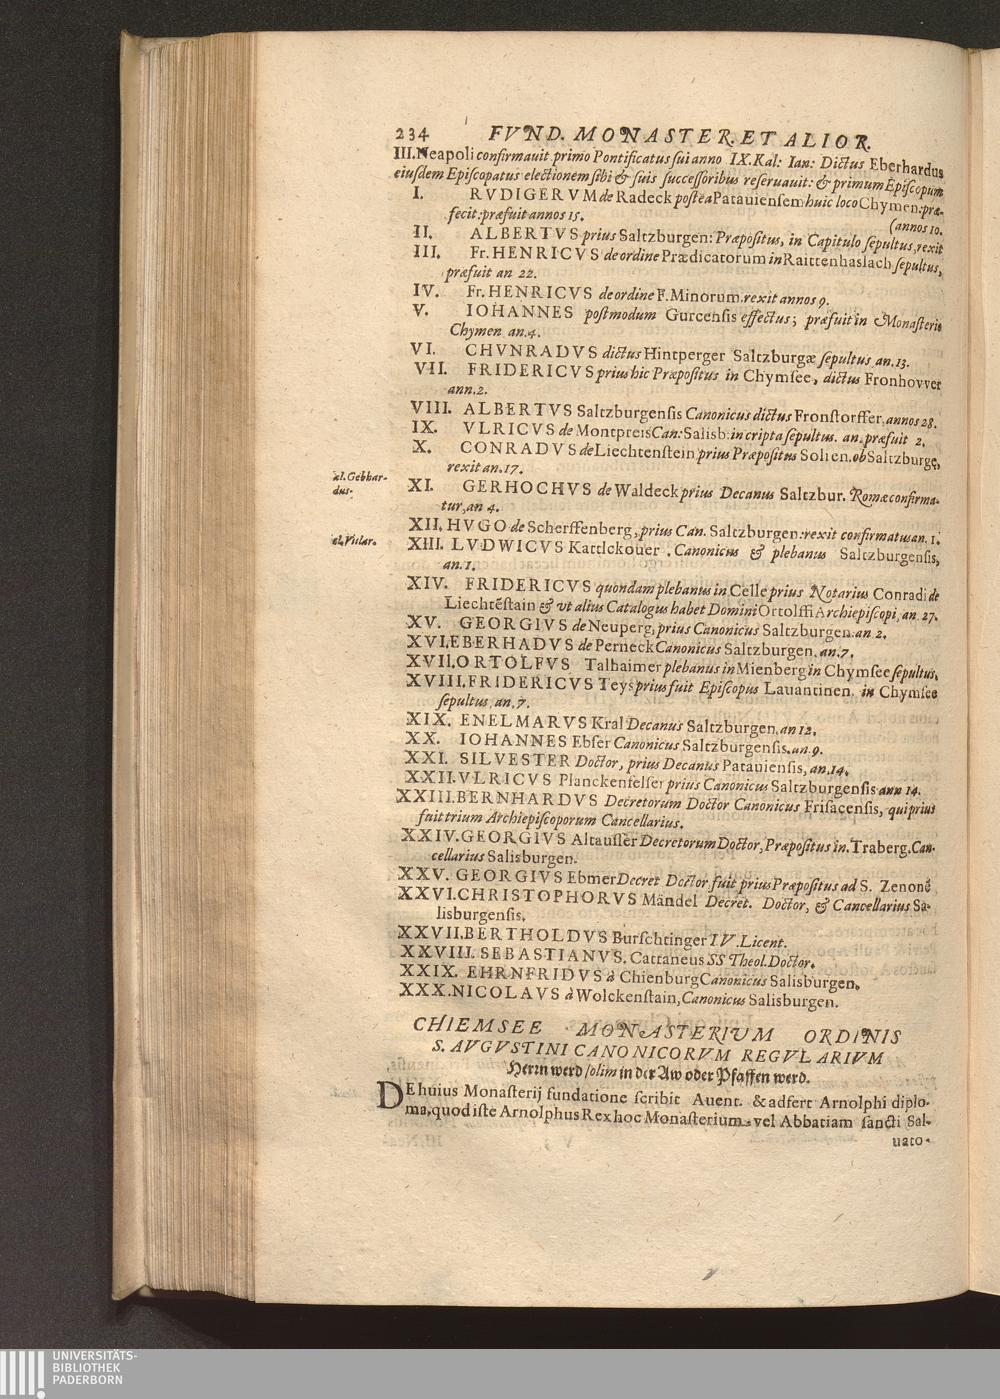 234 FVND. MONASTER. ET ALIOR.
III. Neapoli confirmauit primo Pontificatus sui anno IX. Kal: Ian: Dictus Eberhardus
eiusdem Episcopatus electionem sibi & suis successoribus reseruauit: & primum Episcopum
I. RVDIGERVM de Radeck postea Patauiensem huic loco Chymen: præ-
fecit: præfuit annos 15.
(annos 10.
II. ALBERTVS prius Saltzburgen: Præpositus, in Capitulo sepultus, rexit
III. Fr. HENRICVS de ordine Prædicatorum in Raittenhaslach sepultus,
præfuit an 22.
IV. Fr. HENRICVS de ordine F. Minorum. rexit annos 9.
V. IOHANNES postmodum Gurcensis effectus; præfuit in Monasterio
Chymen an. 4.
VI. CHVNRADVS dictus Hintperger Saltzburgæ sepultus an. 13.
VII. FRIDERICVS prius hic Præpositus in Chymsee, dictus Fronhovver
ann. 2.
VIII. ALBERTVS Saltzburgensis Canonicus dictus Fronstorffer, annos 28.
IX. VLRICVS de Montpreis Can: Salisb: in cripta sepultus. an. præfuit 2.
X. CONRADVS de Liechtenstein prius Præpositus Solien. ob Saltzburgę,
rexit an. 17.
al. Gebhar-
dus.
XI. GERHOCHVS de Waldeck prius Decanus Saltzbur. Romæ confirma-
tur, an 4.
XII. HVGO de Scherffenberg, prius Can. Saltzburgen: rexit confirmatus an. 1.
al. Vular.
XIII. LVDWICVS Kattlckouer. Canonicus & plebanus Saltzburgensis,
an. 1.
XIV. FRIDERICVS quondam plebanus in Celle prius Notarius Conradi de
Liechtēstain & vt alius Catalogus habet Domini Ortolffi Archiepiscopi, an 27.
XV. GEORGIVS de Neuperg, prius Canonicus Saltzburgen. an 2.
XVI. EBERHADVS de Perneck Canonicus Saltzburgen. an. 7.
XVII. ORTOLFVS Talhaimer plebanus in Mienberg in Chymsee sepultus,
XVIII. FRIDERICVS Teys prius fuit Episcopus Lauantinen. in Chymsee
sepultus, an. 7.
XIX. ENELMARVS Kral Decanus Saltzburgen. an 12.
XX. IOHANNES Ebser Canonicus Saltzburgensis. an. 9.
XXI. SILVESTER Doctor, prius Decanus Patauiensis, an. 14.
XXII. VLRICVS Planckenfelser prius Canonicus Saltzburgensis ann 14.
XXIII. BERNHARDVS Decretorum Doctor Canonicus Frisacensis, qui prius
fuit trium Archiepiscoporum Cancellarius.
XXIV. GEORGIVS Altausser Decretorum Doctor, Præpositus in. Traberg, Can-
cellarius Salisburgen.
XXV. GEORGIVS Ebmer Decret Doctor. fuit prius Præpositus ad S. Zenonē
XXVI. CHRISTOPHORVS Mändel Decret. Doctor, & Cancellarius Sa-
lisburgensis,
XXVII. BERTHOLDVS Burschtinger IV. Licent.
XXVIII. SEBASTIANVS. Cattaneus SS Theol. Doctor.
XXIX. EHRNFRIDVS à Chienburg Canonicus Salisburgen.
XXX. NICOLAVS à Wolckenstain, Canonicus Salisburgen.
CHIEMSEE MONASTERIUM ORDINIS
S. AVGVSTINI CANONICORVM REGVLARIVM
Herrn werd / olim in der Aw oder Pfaffen werd.
DE huius Monasterij fundatione scribit Auent. & adfert Arnolphi diplo-
ma, quod iste Arnolphus Rex hoc Monasterium, vel Abbatiam sancti Sal-
uato-
UNIVERSITÄTS-
BIBLIOTHEK
PADERBORN